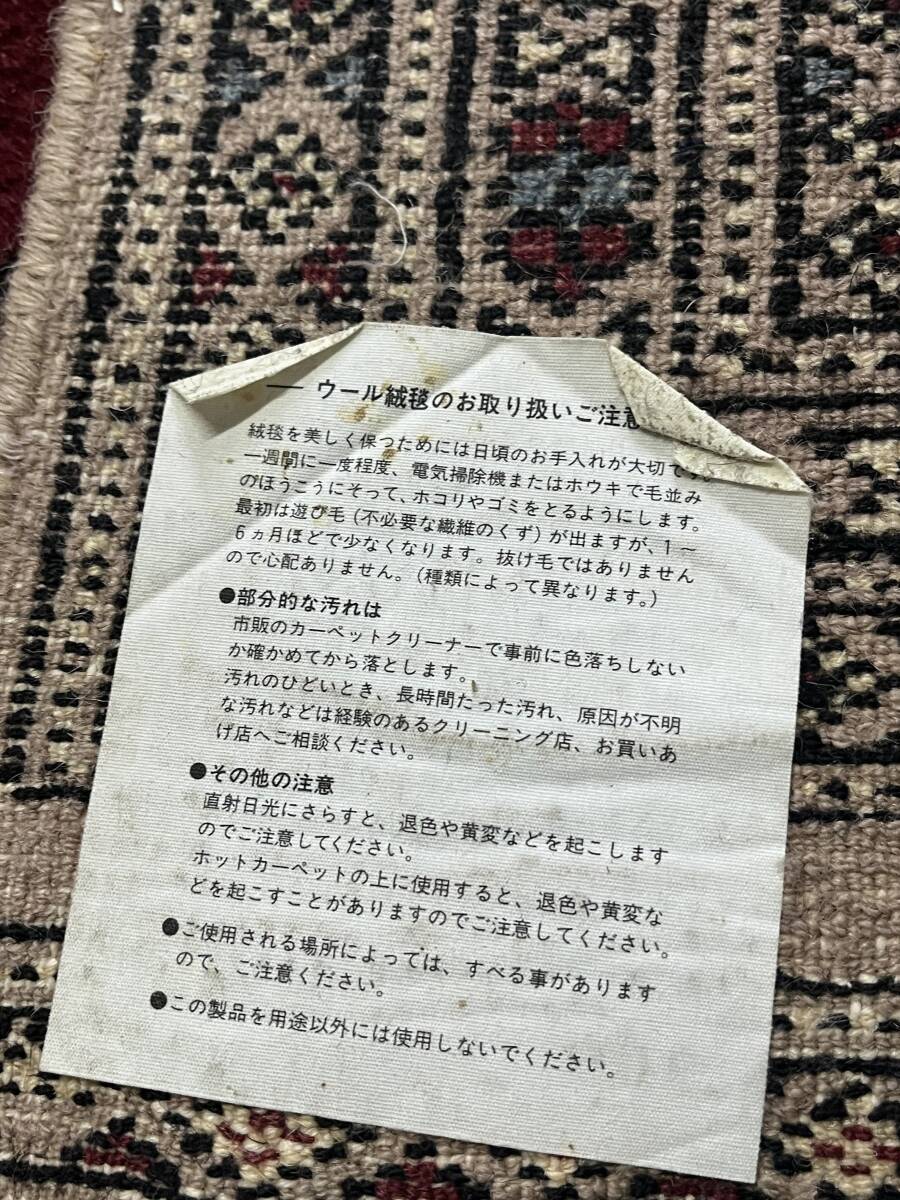 ── ウール絨毯のお取り扱いご注意
絨毯を美しく保つためには日頃のお手入れが大切です。
一週間に一度程度、電気掃除機またはホウキで毛並み
のほうこうにそって、ホコリやゴミをとるようにします。
最初は遊び毛(不必要な繊維のくず)が出ますが、1〜
6ヵ月ほどで少なくなります。抜け毛ではありません
ので心配ありません。(種類によって異なります。)
●部分的な汚れは
市販のカーペットクリーナーで事前に色落ちしない
か確かめてから落とします。
汚れのひどいとき、長時間たった汚れ、原因が不明
な汚れなどは経験のあるクリーニング店、お買いあ
げ店へご相談ください。
●その他の注意
直射日光にさらすと、退色や黄変などを起こします
のでご注意してください。
ホットカーペットの上に使用すると、退色や黄変な
どを起こすことがありますのでご注意してください。
●ご使用される場所によっては、すべる事があります
ので、ご注意ください。
●この製品を用途以外には使用しないでください。